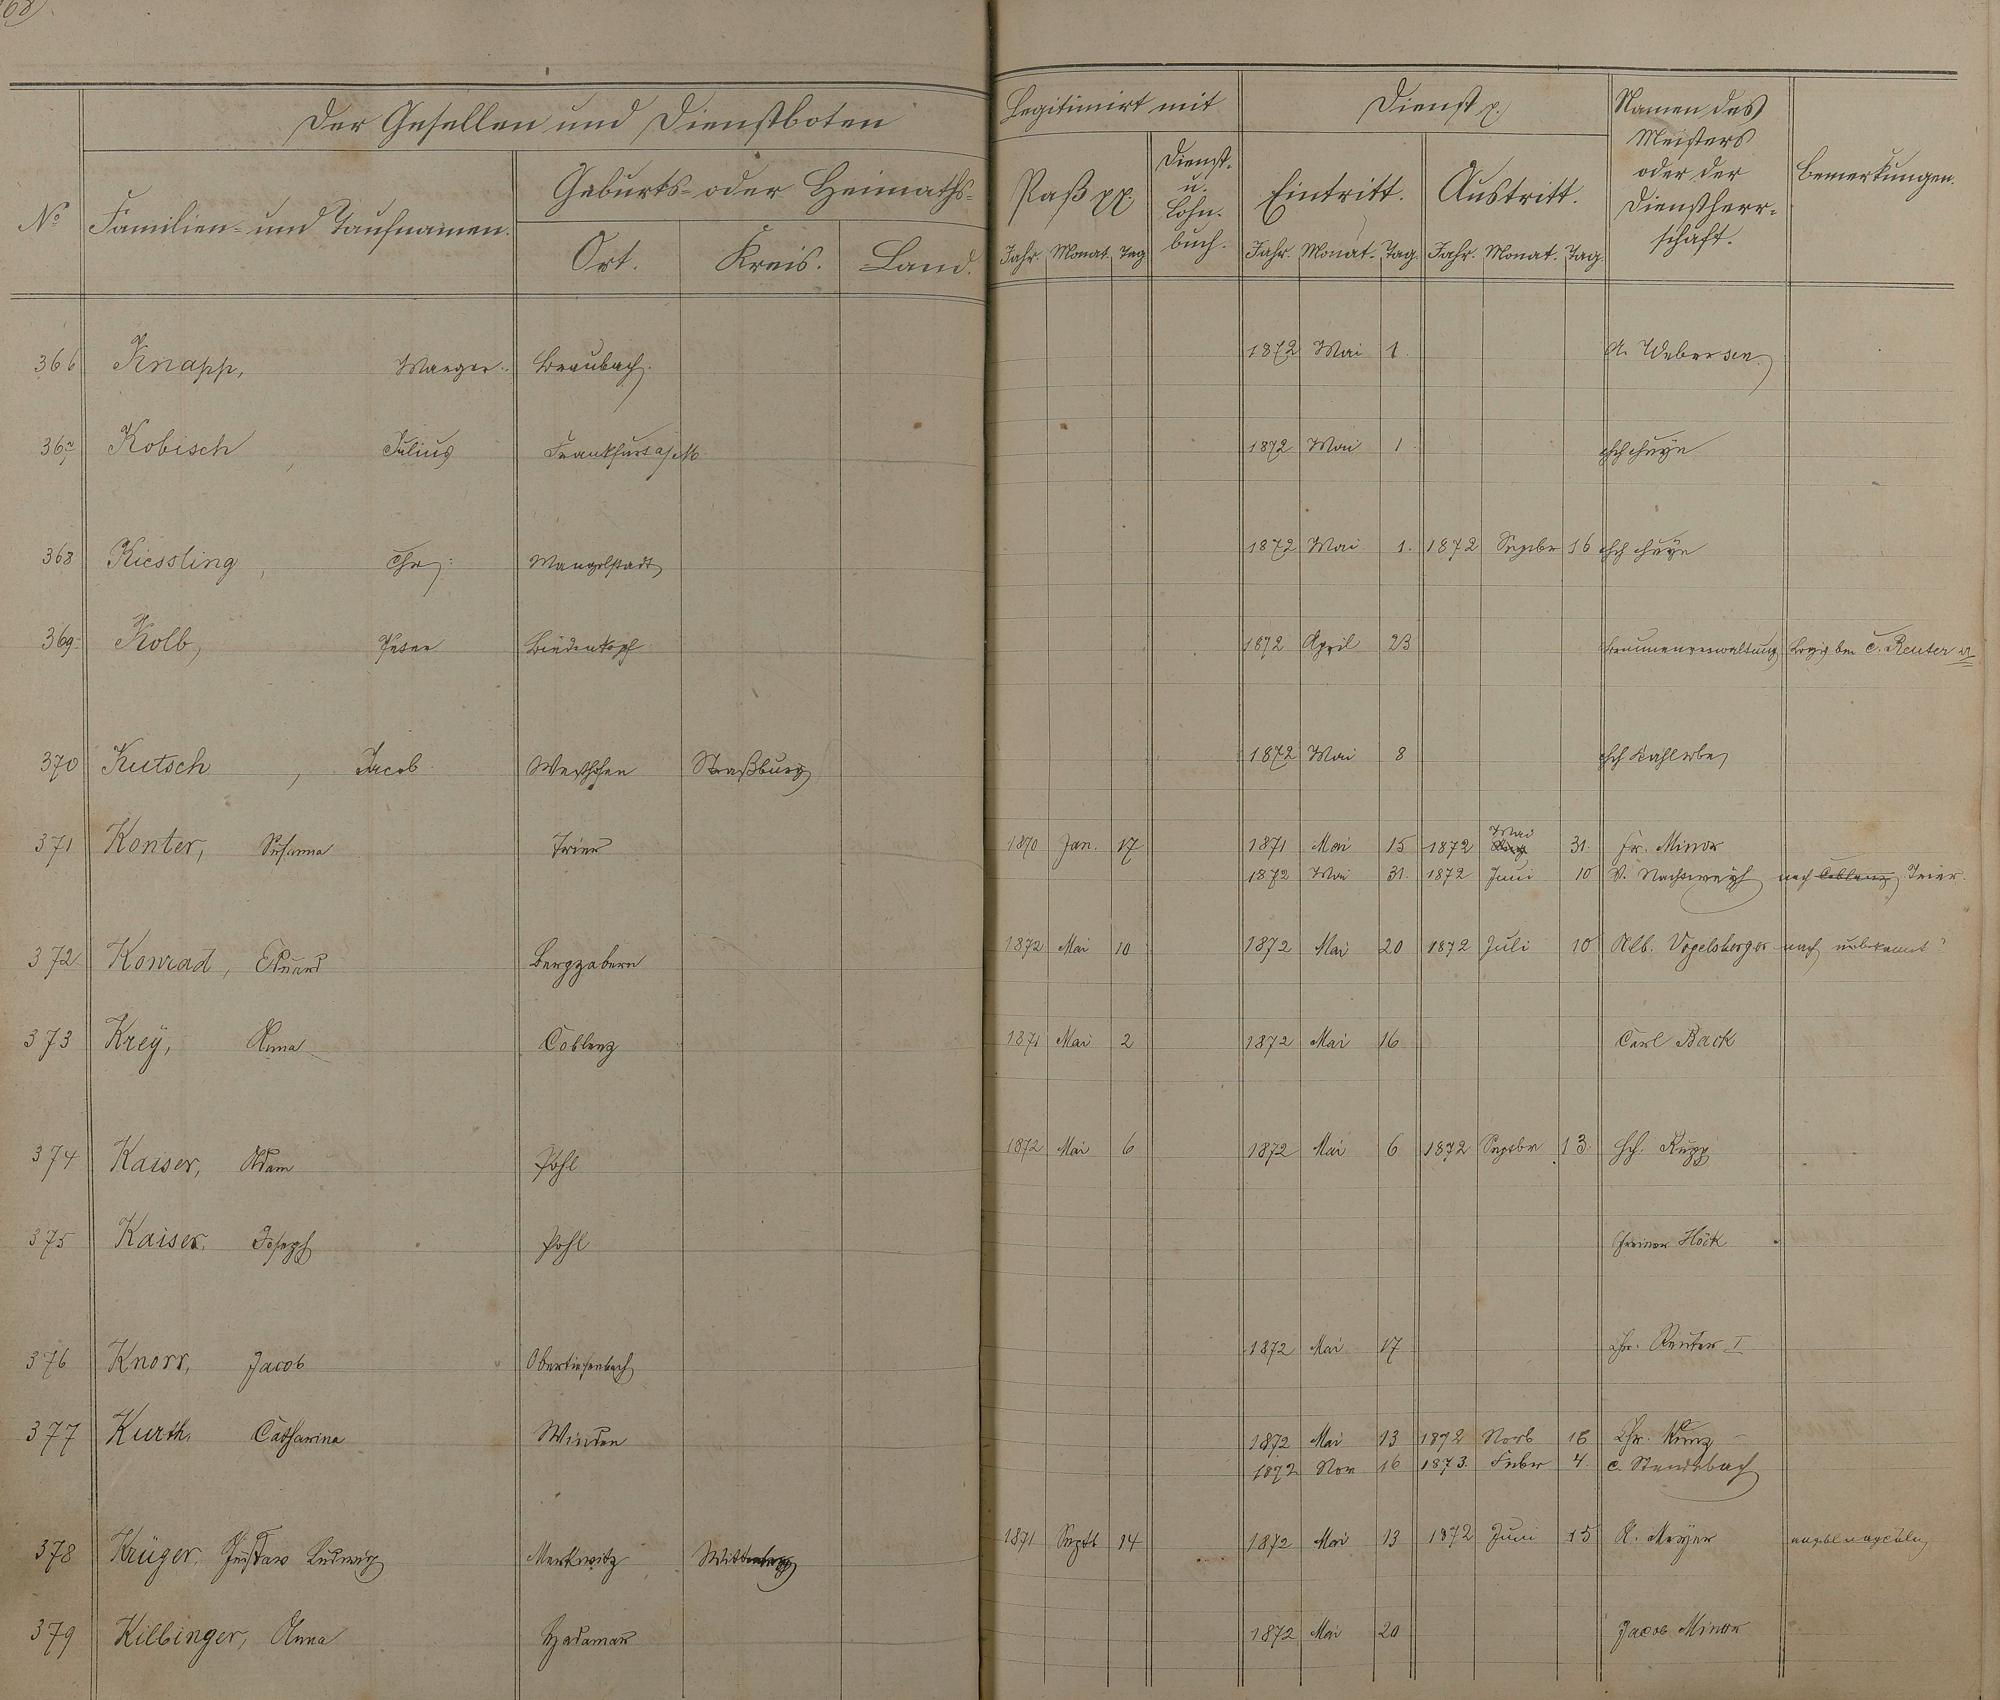 Der Gesellen und Dienstboten
Legitimirt mit
Dienst p.
Namen des Meisters oder der Dienstherrschaft.
Bemerkungen.
No
Familien- und Taufnamen.
Geburts- oder Heimaths-
Ort. Kreis. Land.
Paß pp.
Dienst- u. Lohn-buch.
Eintritt. Austritt.
Jahr. Monat. Tag
Jahr. Monat. Tag. Jahr. Monat. Tag.
366 Knapp, Braubach. 1872 Mai 1. A. Weber sen.
367 Kobisch, Julius Frankfurt a/M. 1872 Mai 1
368 Kiessling, Chr: 1872 Mai 1. 1872 Septbr 16
369. Kolb, Peter Biedenkopf 1872 April 23 Brunnenverwaltung Logis bei C. Reuter
370 Kutsch, Jacob Westhofen Straßburg 1872 Mai 8
371 Konter, Susanna Trier 1870 Jan. 17 1871 Mai 15 1872 Mai 31. Fr. Minor
1872 Mai 31. 1872 Juni 10 nach Coblenz Trier.
372 Konrad, Eduard Bergzabern 1872 Mai 10 1872 Mai 20 1872 Juli 10 Alb. Vogelsberger nach unbekannt
373 Krey, Anna Coblenz 1871 Mai 2 1872 Mai 16 Carl Back
374 Kaiser, Adam Pohl 1872 Mai 6 1872 Mai 6 1872 Septbr 13. Hch. Rupp
375 Kaiser. Joseph Pohl Höck
376 Knorr, Jacob Obertiefenbach 1872 Mai 17 Chr. Reuter I
377 Kurth. Catharina Winden 1872 Mai 13 1872 Novb 16 Chr. Kunz
1872 Nov 16 1873. Febr 4. C.
378 Krüger, Gustav Ludwig Merkwitz Wittenberg 1871 Septb 14 1872 Mai 13 1872 Juni 15 A. Meyer
379 Kilbinger, Anna Hadamar 1872 Mai 20 Jacob Minor